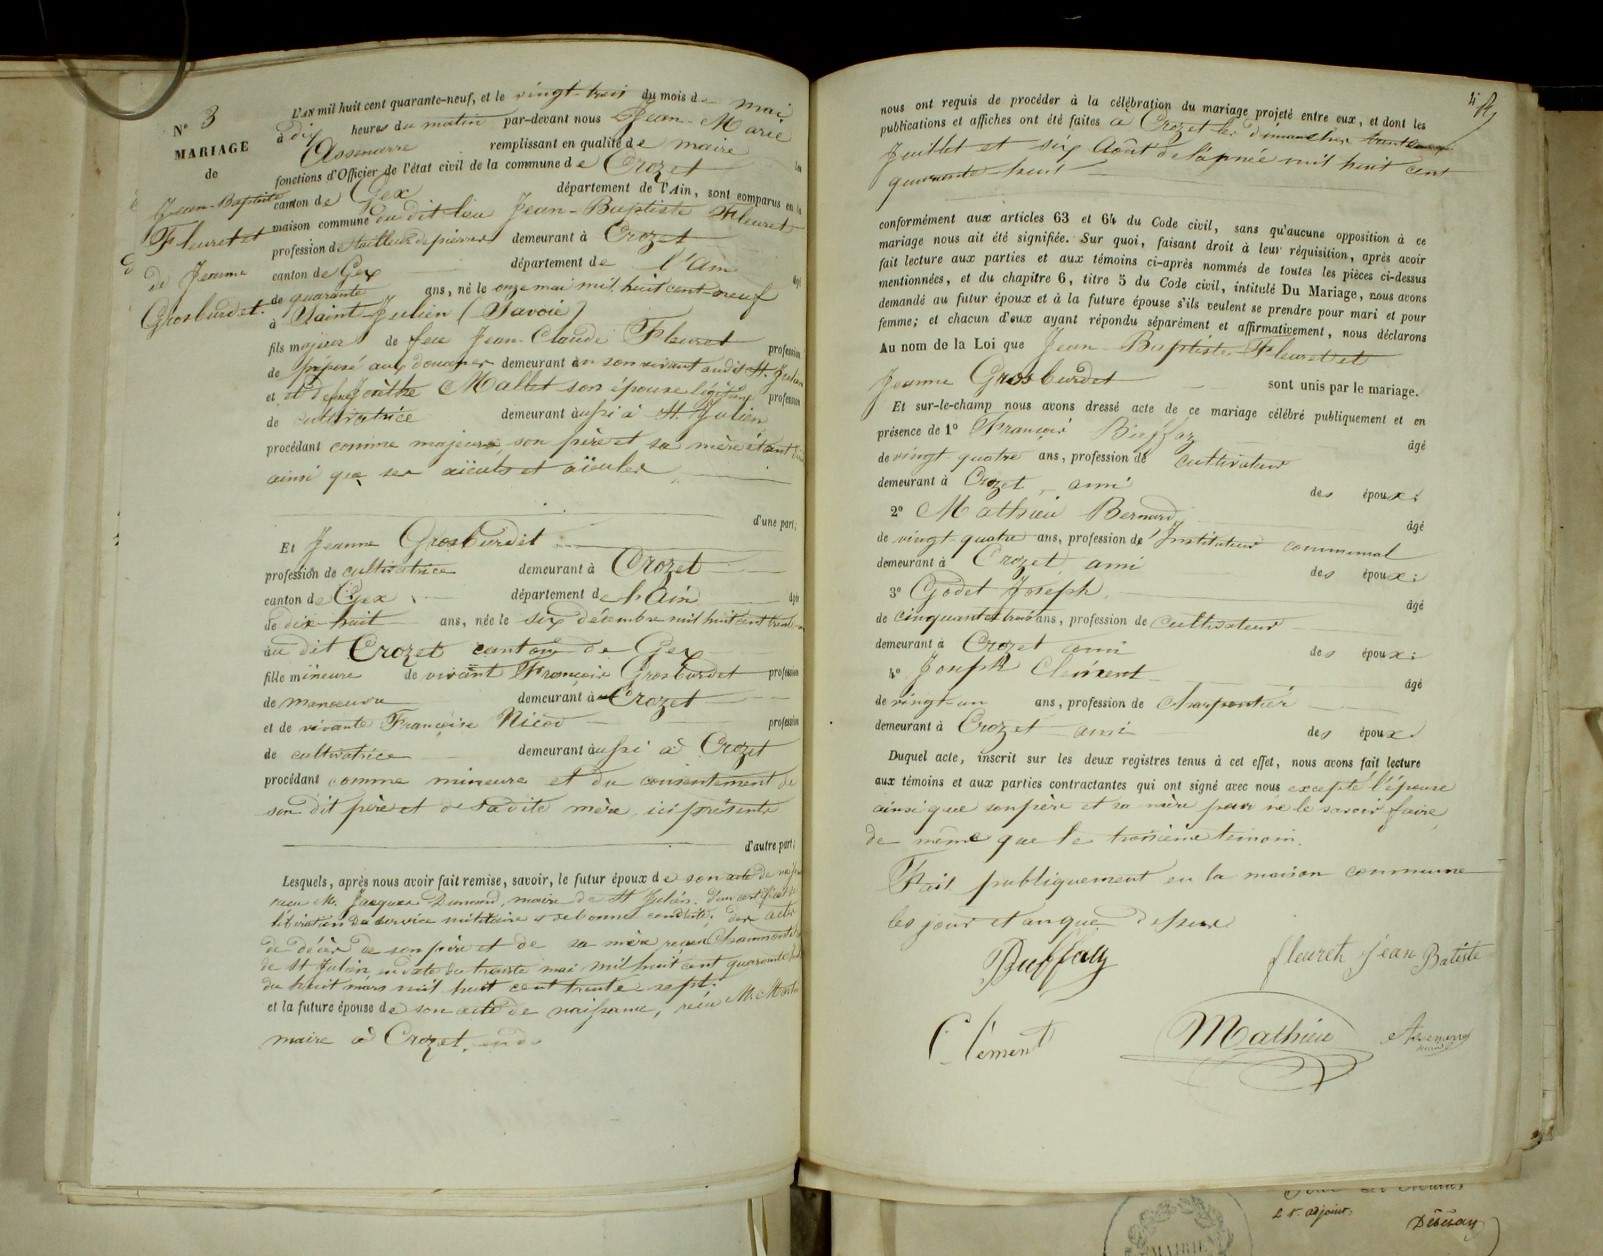 N° 3
MARIAGE
de
Jean-Baptiste
Fleuret et
de Jeanne
Grosburdet.
L'AN mil huit cent quarante-neuf, et le vingt-trois du mois de mai
à dix heures du matin par-devant nous Jean-Marie
Assenarre remplissant en qualité de maire les
fonctions d'Officier de l'état civil de la commune de Crozet
canton de Gex département de l'Ain, sont comparus en la
maison commune du dit lieu Jean-Baptiste Fleuret
profession de tailleur de pierres demeurant à Crozet
canton de Gex département de l'Ain âgé
de quarante ans, né le onze mai mil huit cent neuf
à Saint-Julien (Savoie)
fils majeur de feu Jean-Claude Fleuret profession
de préposé aux douanes demeurant en son vivant audit St. Julien
et de feue Mallet son épouse légitime profession
de cultivatrice demeurant aussi à St Julien
procédant comme majeur, son père et sa mère étant
ainsi que ses aïeuls et aïeules
d'une part;
Et Jeanne Grosburdet
profession de cultivatrice demeurant à Crozet
canton de Gex département de l'Ain âgée
de dix-huit ans, née le six décembre mil huit cent trente
au dit Crozet canton de Gex
fille mineure de vivant François Grosburdet profession
de manoeuvre demeurant à Crozet
et de vivante Françoise Nicod profession
de cultivatrice demeurant aussi à Crozet
procédant comme mineure et du consentement de
son dit père et de sa dite mère, ici présents
d'autre part;
Lesquels, après nous avoir fait remise, savoir, le futur époux de son acte de
Jacques Dumond, maire de St Julien, d'un certificat de
libération du service militaire et de bonne conduite, des actes
de décès de son père et de sa mère reçus
de St Julien, en date du trente mai mil huit cent quarante
du huit mars mil huit cent trente-sept;
et la future épouse de son acte de naissance, reçu M.
maire à Crozet,
4
nous ont requis de procéder à la célébration du mariage projeté entre eux, et dont les
publications et affiches ont été faites à Crozet les dimanches
Juillet et six Août de l'année mil huit cent
quarante-huit
conformément aux articles 63 et 64 du Code civil, sans qu'aucune opposition à ce
mariage nous ait été signifiée. Sur quoi, faisant droit à leur réquisition, après avoir
fait lecture aux parties et aux témoins ci-après nommés de toutes les pièces ci-dessus
mentionnées, et du chapitre 6, titre 5 du Code civil, intitulé Du Mariage, nous avons
demandé au futur époux et à la future épouse s'ils veulent se prendre pour mari et pour
femme; et chacun d'eux ayant répondu séparément et affirmativement, nous déclarons
Au nom de la Loi que Jean-Baptiste Fleuret et
Jeanne Grosburdet sont unis par le mariage.
Et sur-le-champ nous avons dressé acte de ce mariage célébré publiquement et en
présence de 1° François Buffaz âgé
de vingt quatre ans, profession de cultivateur
demeurant à Crozet ami des époux;
2° Mathieu Bernard âgé
de vingt-quatre ans, profession de Instituteur communal
demeurant à Crozet ami des époux;
3° Godet Joseph âgé
de cinquante trois ans, profession de Cultivateur
demeurant à Crozet ami des époux;
4° Joseph Clément âgé
de vingt-un ans, profession de Charpentier
demeurant à Crozet ami des époux.
Duquel acte, inscrit sur les deux registres tenus à cet effet, nous avons fait lecture
aux témoins et aux parties contractantes qui ont signé avec nous excepté l'épouse
ainsi que son père et sa mère pour ne le savoir faire,
de même que le troisième témoin.
Fait publiquement en la maison commune
les jour et an que dessus
Buffaz fleuret Jean Batiste
Clément Mathieu
MAIRIE